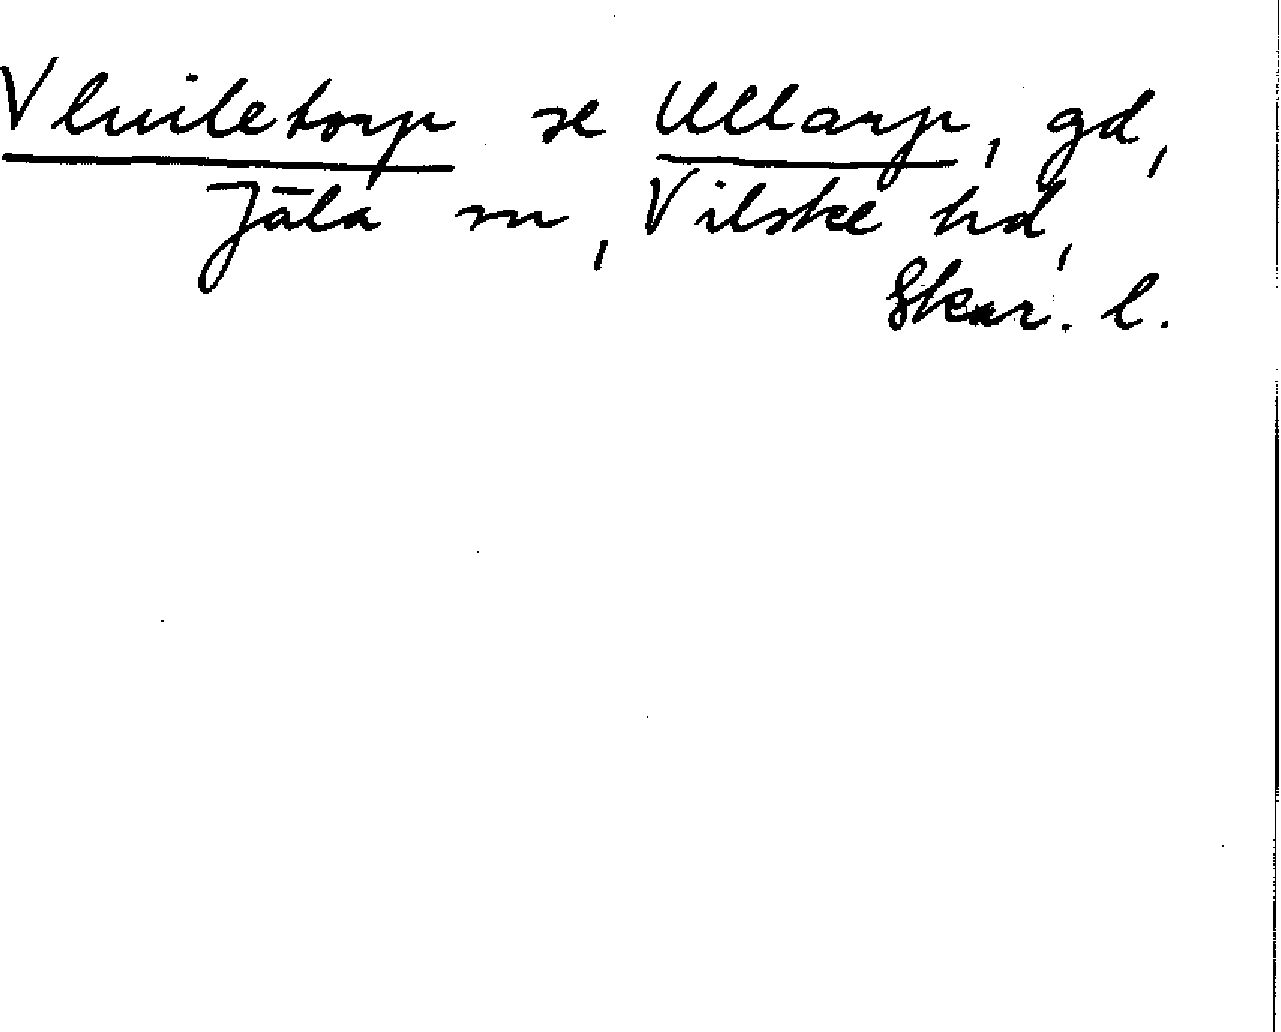 Vluiletorp se Ullarp, gd,
Jäla sn, Vilske hd,
Skar. l.